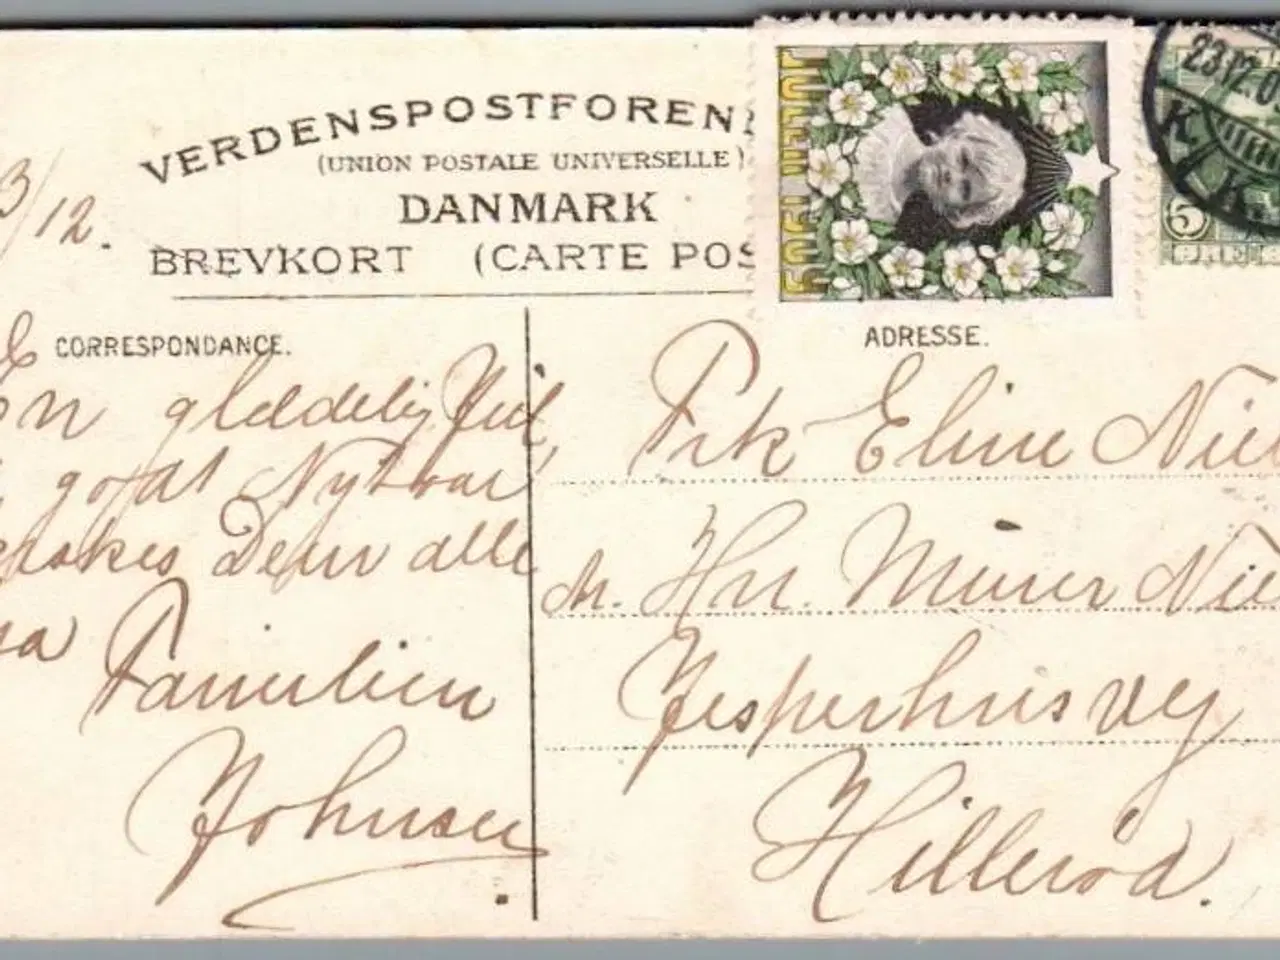 VERDENSPOSTFOREN
(UNION POSTALE UNIVERSELLE)
DANMARK
BREVKORT (CARTE POS
3/12.
23.12.0
K.
K.
5
ØRE
JULEN 1907
CORRESPONDANCE.
En glædelig Jul,
godt Nytaar
ønskes Dem alle
fra Familien
Johnsen
ADRESSE.
Frk Eline Niel
Hr. Murer Niel
Jesperhusvej
Hillerød.